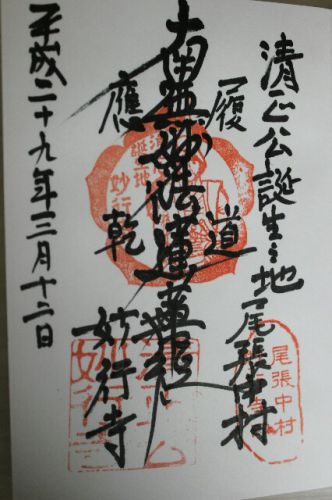 清正公誕生之地尾張中村
履道
南無妙法蓮華経
應乾
妙行寺
平成二十九年三月十二日
尾張中村
誕生地
妙行